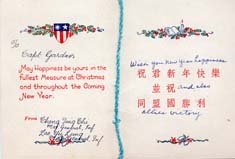 To
Capt. Gardner
May Happiness be yours in the
Fullest Measure at Christmas
and throughout the Coming
New Year.
From
Wish you New year happiness
祝君新年快樂
並祝 and also
同盟國勝利
allies victory